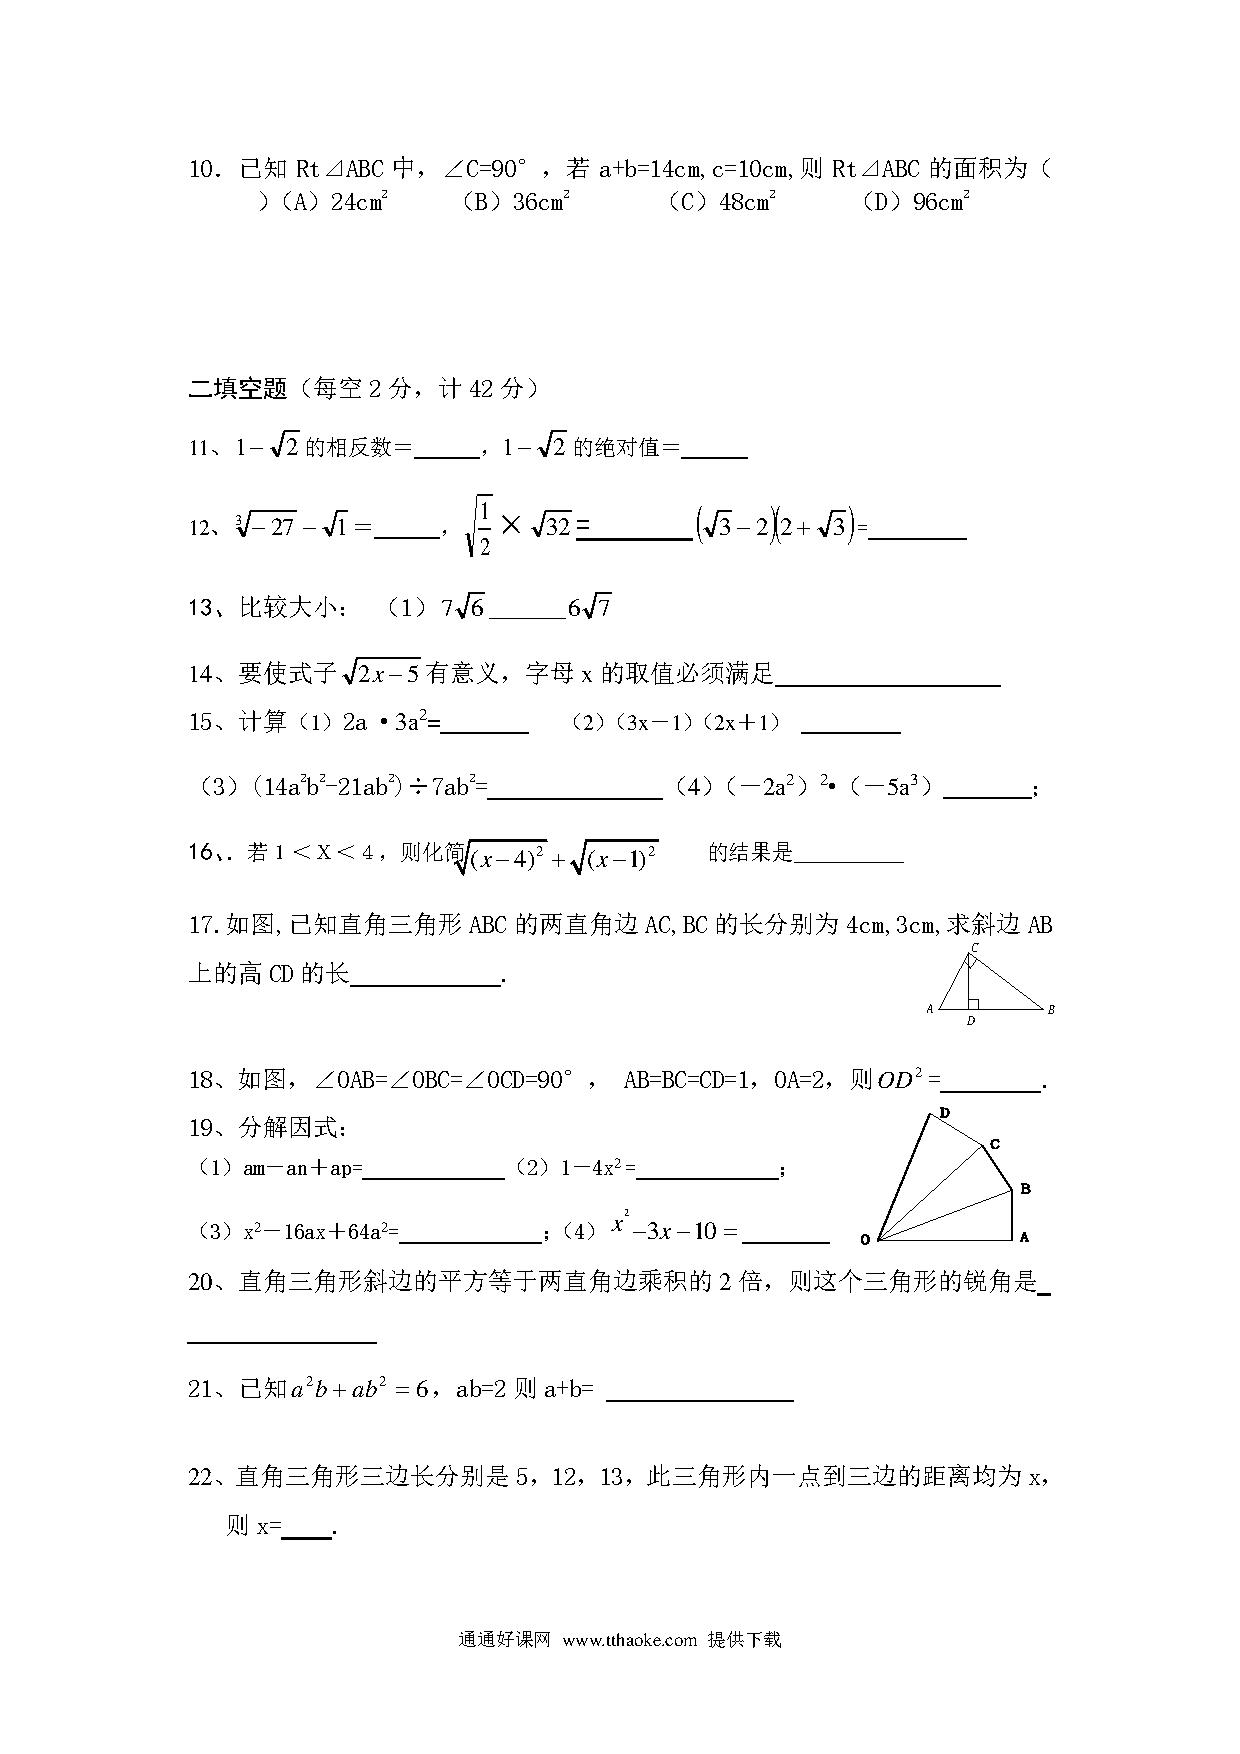 10．已知 Rt⊿ABC 中，∠C=90°，若 a+b=14cm,c=10cm,则 Rt⊿ABC 的面积为（
）（A）24cm²　（B）36cm²　（C）48cm²　（D）96cm²
二填空题（每空 2 分，计 42 分）
11、1−√2 的相反数＝______，1−√2 的绝对值＝______
12、∛−27 − √1 ＝______，√(1/2) × √32 =________ (√3−2)(2+√3)=________
13、比较大小：（1）7√6______6√7
14、要使式子 √(2x−5) 有意义，字母 x 的取值必须满足________________
15、计算（1）2a •3a²=_______　（2）（3x－1）（2x＋1）________
（3）(14a²b²-21ab²)÷7ab²=______________（4）（－2a²）²•（－5a³）_______；
16、．若 1＜X＜4，则化简√(x−4)² + √(x−1)² 的结果是__________
17.如图,已知直角三角形 ABC 的两直角边 AC,BC 的长分别为 4cm,3cm,求斜边 AB
上的高 CD 的长____________.
C
A
B
D
18、如图，∠OAB=∠OBC=∠OCD=90°， AB=BC=CD=1，OA=2，则OD²=________.
19、分解因式：
（1）am－an＋ap=_____________（2）1－4x²=_____________；
（3）x²－16ax＋64a²=_____________；（4）x²−3x−10 = ________
D
C
B
A
O
20、直角三角形斜边的平方等于两直角边乘积的 2 倍，则这个三角形的锐角是_
_______________
21、已知a²b + ab² = 6，ab=2 则 a+b= _______________
22、直角三角形三边长分别是 5，12，13，此三角形内一点到三边的距离均为 x，
则 x=____.
通通好课网 www.tthaoke.com 提供下载